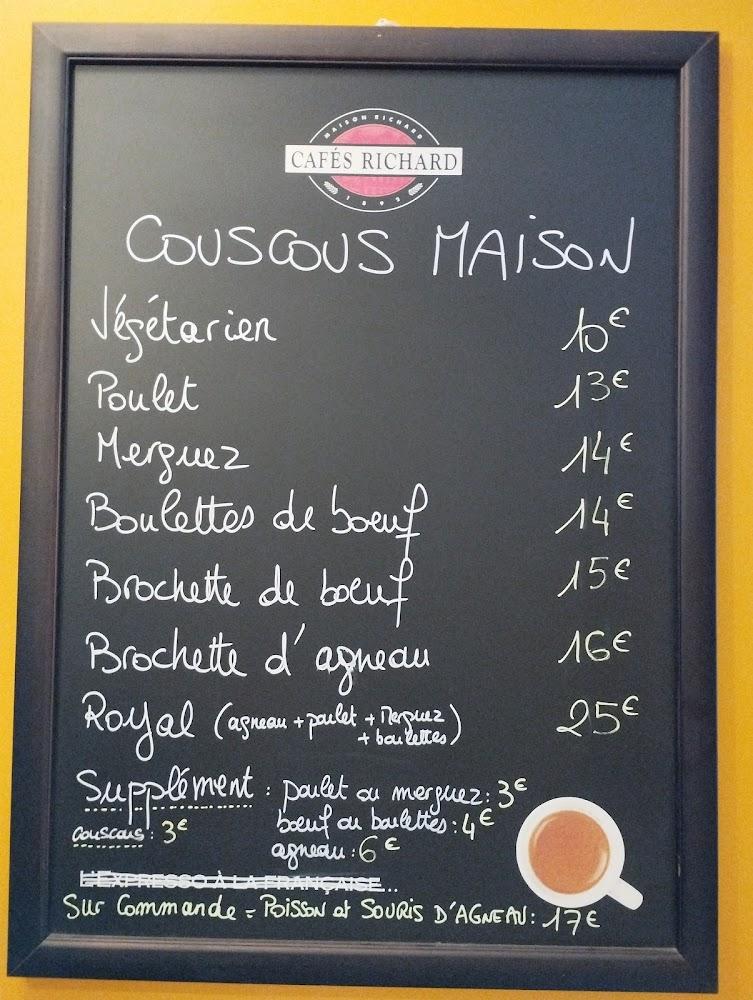 MAISON RICHARD
CAFÉS RICHARD
1892
COUSCOUS MAISON
Végétarien 10€
Poulet 13€
Merguez 14€
Boulettes de boeuf 14€
Brochette de boeuf 15€
Brochette d'agneau 16€
Royal (agneau + poulet + Merguez 25€
+ boulettes)
Supplément : poulet ou merguez : 3€
couscous : 3€ boeuf ou boulettes : 4€
agneau : 6€
L'EXPRESSO À LA FRANÇAISE...
Sur Commande = POISSON et SOURIS D'AGNEAU : 17€